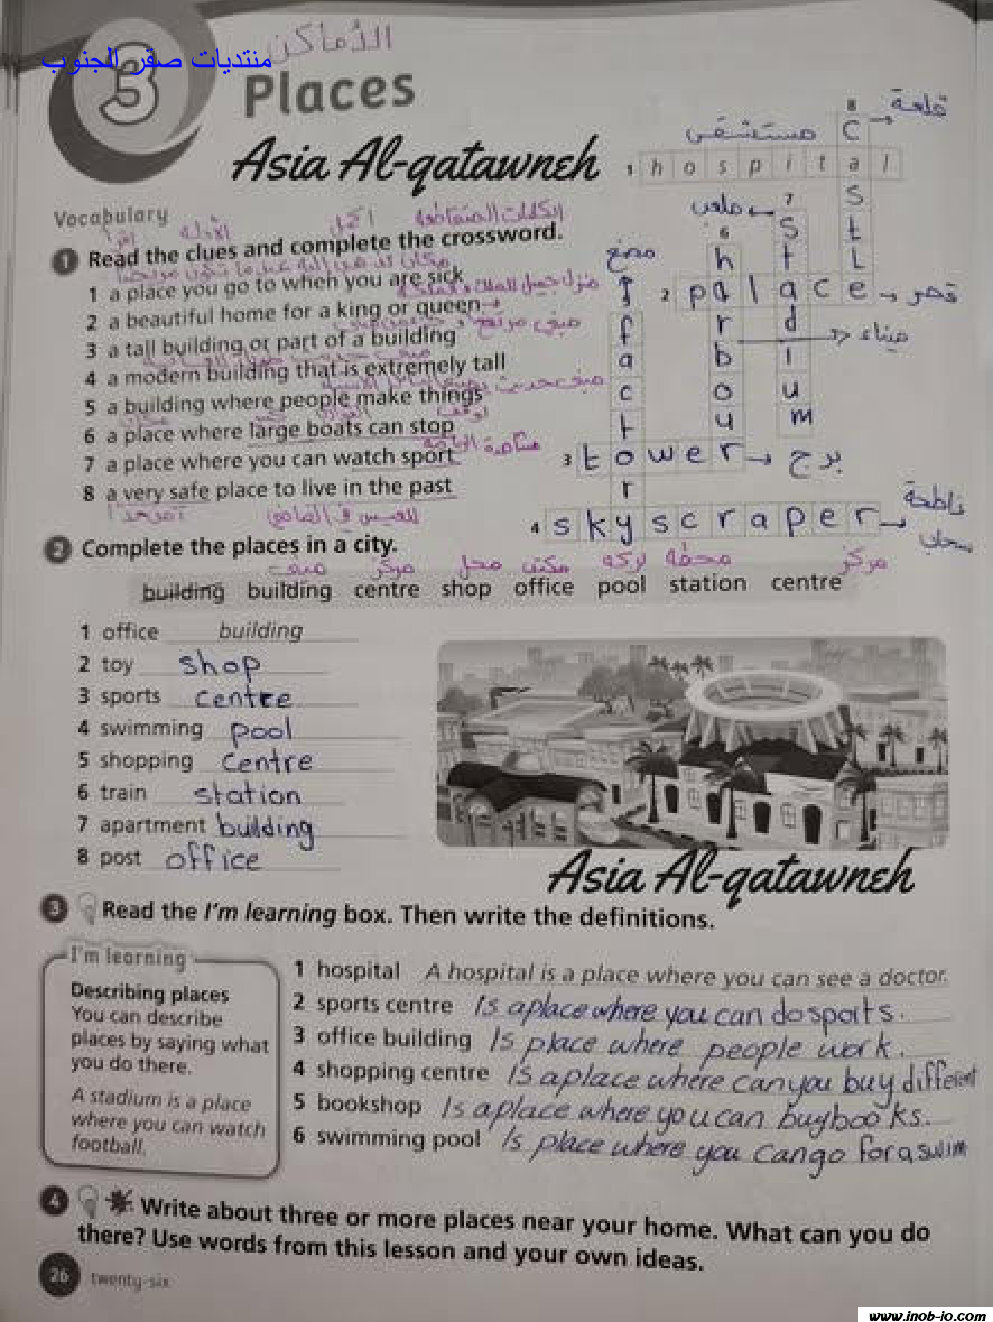 الأماكن
منتديات صقر الجنوب
3
Places
Asia Al-qatawneh
Vocabulary
1 Read the clues and complete the crossword.
1 a place you go to when you are sick
2 a beautiful home for a king or queen
3 a tall building or part of a building
4 a modern building that is extremely tall
5 a building where people make things
6 a place where large boats can stop
7 a place where you can watch sport
8 a very safe place to live in the past
8 castLe
قلعة
مستشفى
1 hospital
7 stadium
ملعب
6 harbour
مصنع
5 factor
2 palace
قصر
ميناء
3 tower
برج
4 skyscraper
ناطحة
سحاب
2 Complete the places in a city.
مبنى مركز محل مكتب بركة محطة مركز
building building centre shop office pool station centre
1 office building
2 toy shop
3 sports centre
4 swimming pool
5 shopping centre
6 train station
7 apartment building
8 post office
Asia Al-qatawneh
3 Read the I'm learning box. Then write the definitions.
I'm learning
Describing places
You can describe
places by saying what
you do there.
A stadium is a place
where you can watch
football.
1 hospital A hospital is a place where you can see a doctor.
2 sports centre Is aplace where you can do sports.
3 office building Is place where people work.
4 shopping centre Is aplace where can you buy different
5 bookshop Is aplace where you can buy books.
6 swimming pool Is place where you can go for a swim
4 Write about three or more places near your home. What can you do
there? Use words from this lesson and your own ideas.
26 twenty-six
www.jnob-jo.com